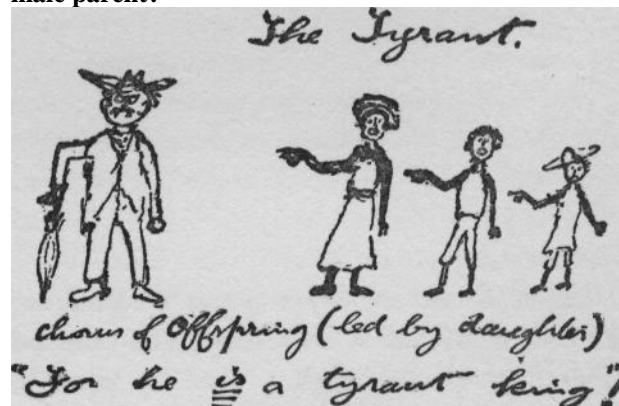 male parent?
The Tyrant.
chorus of Offspring (led by daughter)
"For he is a tyrant king!"